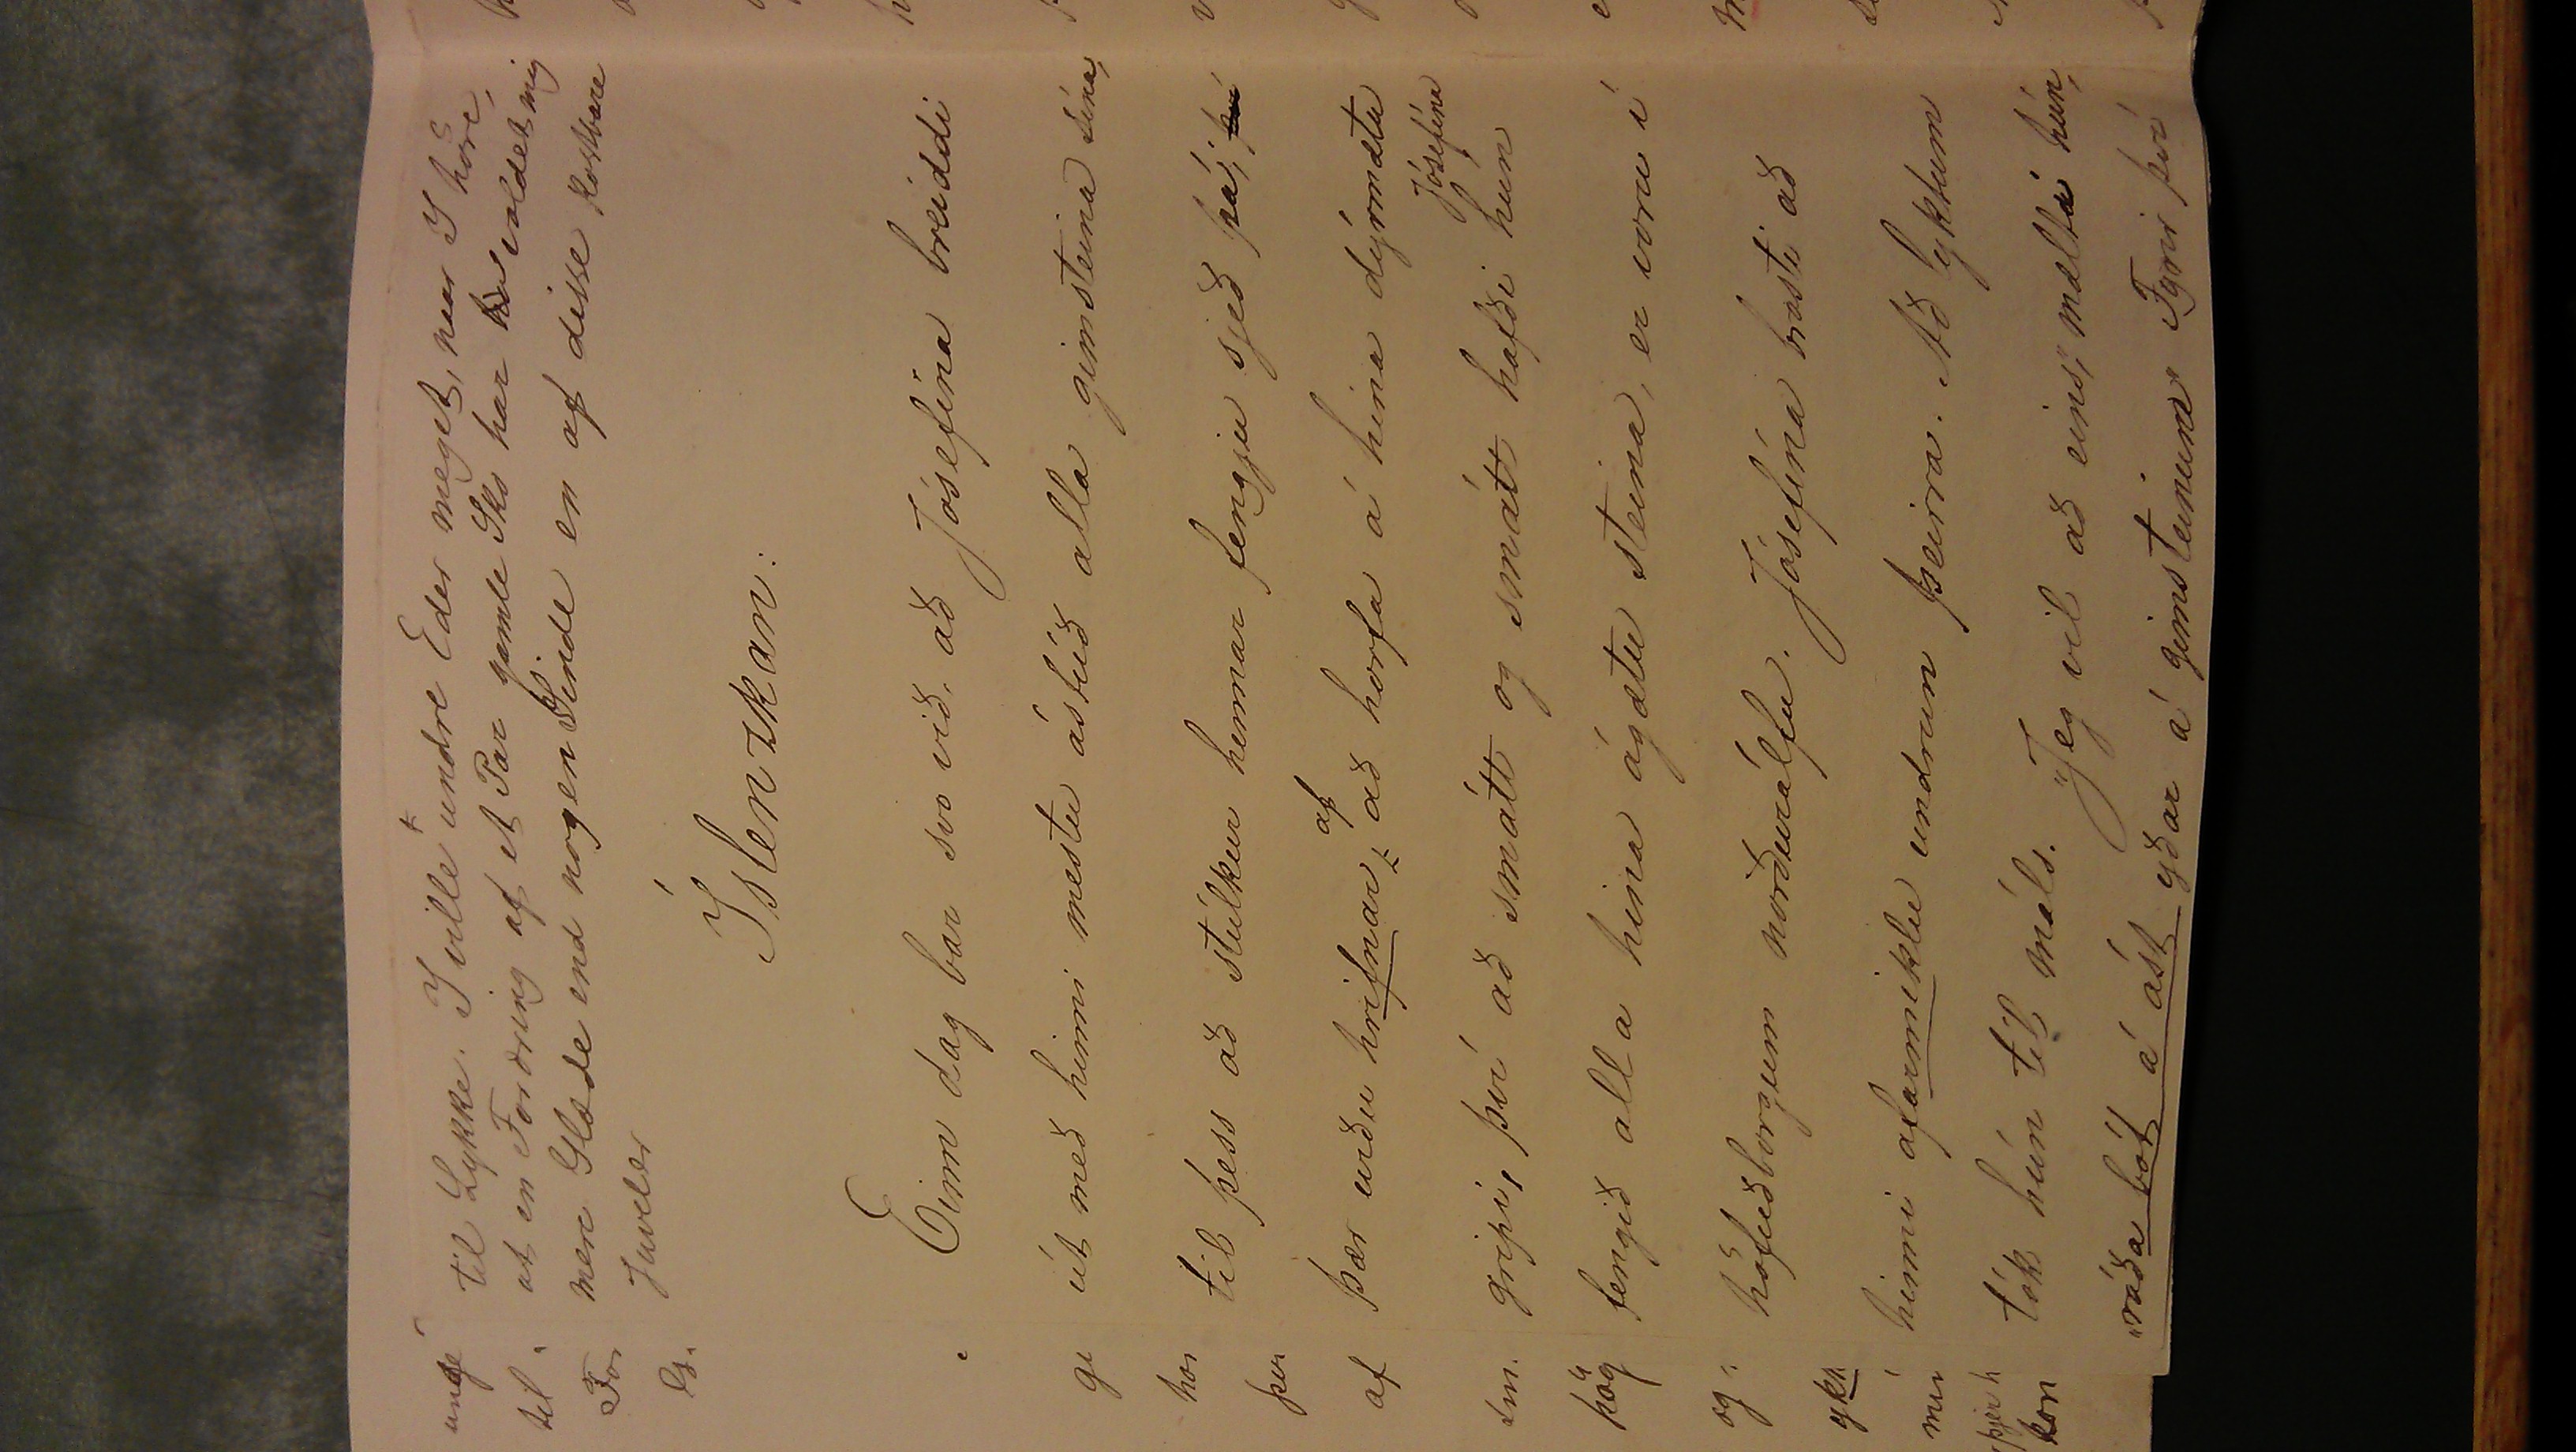 til Lykke. I ville undre Eder meget, naar I höre,
at en Fordring af et Par gamle Sko har voldet mig
mere Glæde end nogen Sinde en af disse kostbare
Juveler
Íslenzkan:
Einn dag bar svo við, að Jósefína breiddi
út með hinni mestu ástúð alla gimsteina sína,
til þess að stúlkur hennar fengju sjeð þá; því
Þær urðu hrifnar af að horfa á hina dýrmætu
gripi, því að smátt og smátt hafði hún Jósefína
fengið alla hina ágætu steina, er voru í
höfuðborgum norðurálfu. Jósefína brosti að
hinni afarmiklu undrun þeirra. Að lyktum
tók hún til máls. "Jeg vil að eins," mælti hún,
"ráða bót á ást yðar á gimsteinum. Fyrir því
unge
til
For
gi
hor
þur
af
hög
og
min
kon